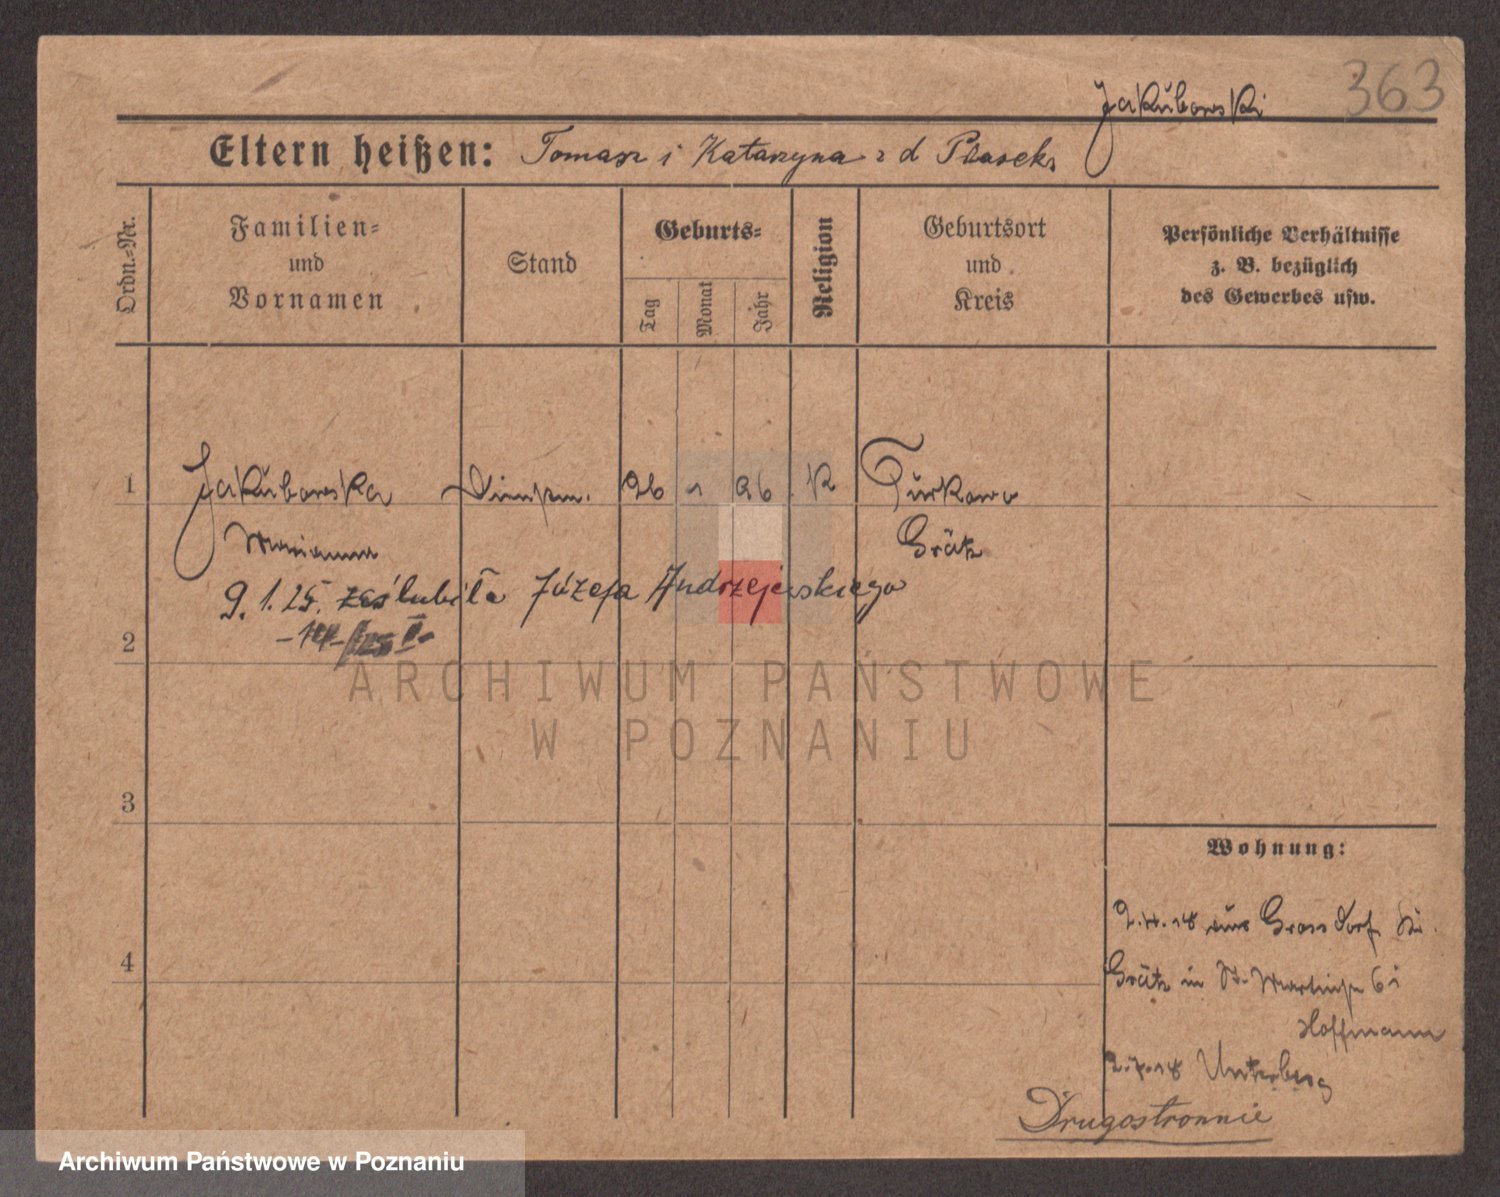 363
Jakubowski
Eltern heißen: Tomasz i Katarzyna z d
Ordn.-Nr.
Familien- und Vornamen
Stand
Geburts-
Tag
Monat
Jahr
Religion
Geburtsort und Kreis
Persönliche Verhältnisse z. B. bezüglich des Gewerbes usw.
1 Jakubowska 26 1 96 K Turkowo
Marianna Grätz
9. 1. 25. zaślubiła Józefa Andrzejewskiego
2
ARCHIWUM PAŃSTWOWE
W POZNANIU
3
Wohnung:
aus Grossdorf
4
Grätz in St. Martinstr 6 i
Hoffmann
Unterberg
Drugostronnie
Archiwum Państwowe w Poznaniu